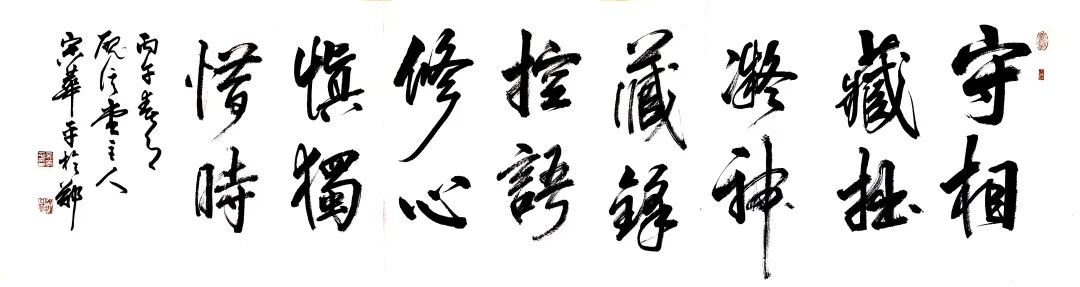 守相
藏拙
凝神
藏鋒
控語
修心
慎獨
惜時
丙午春月
主人
宗華平於鄭